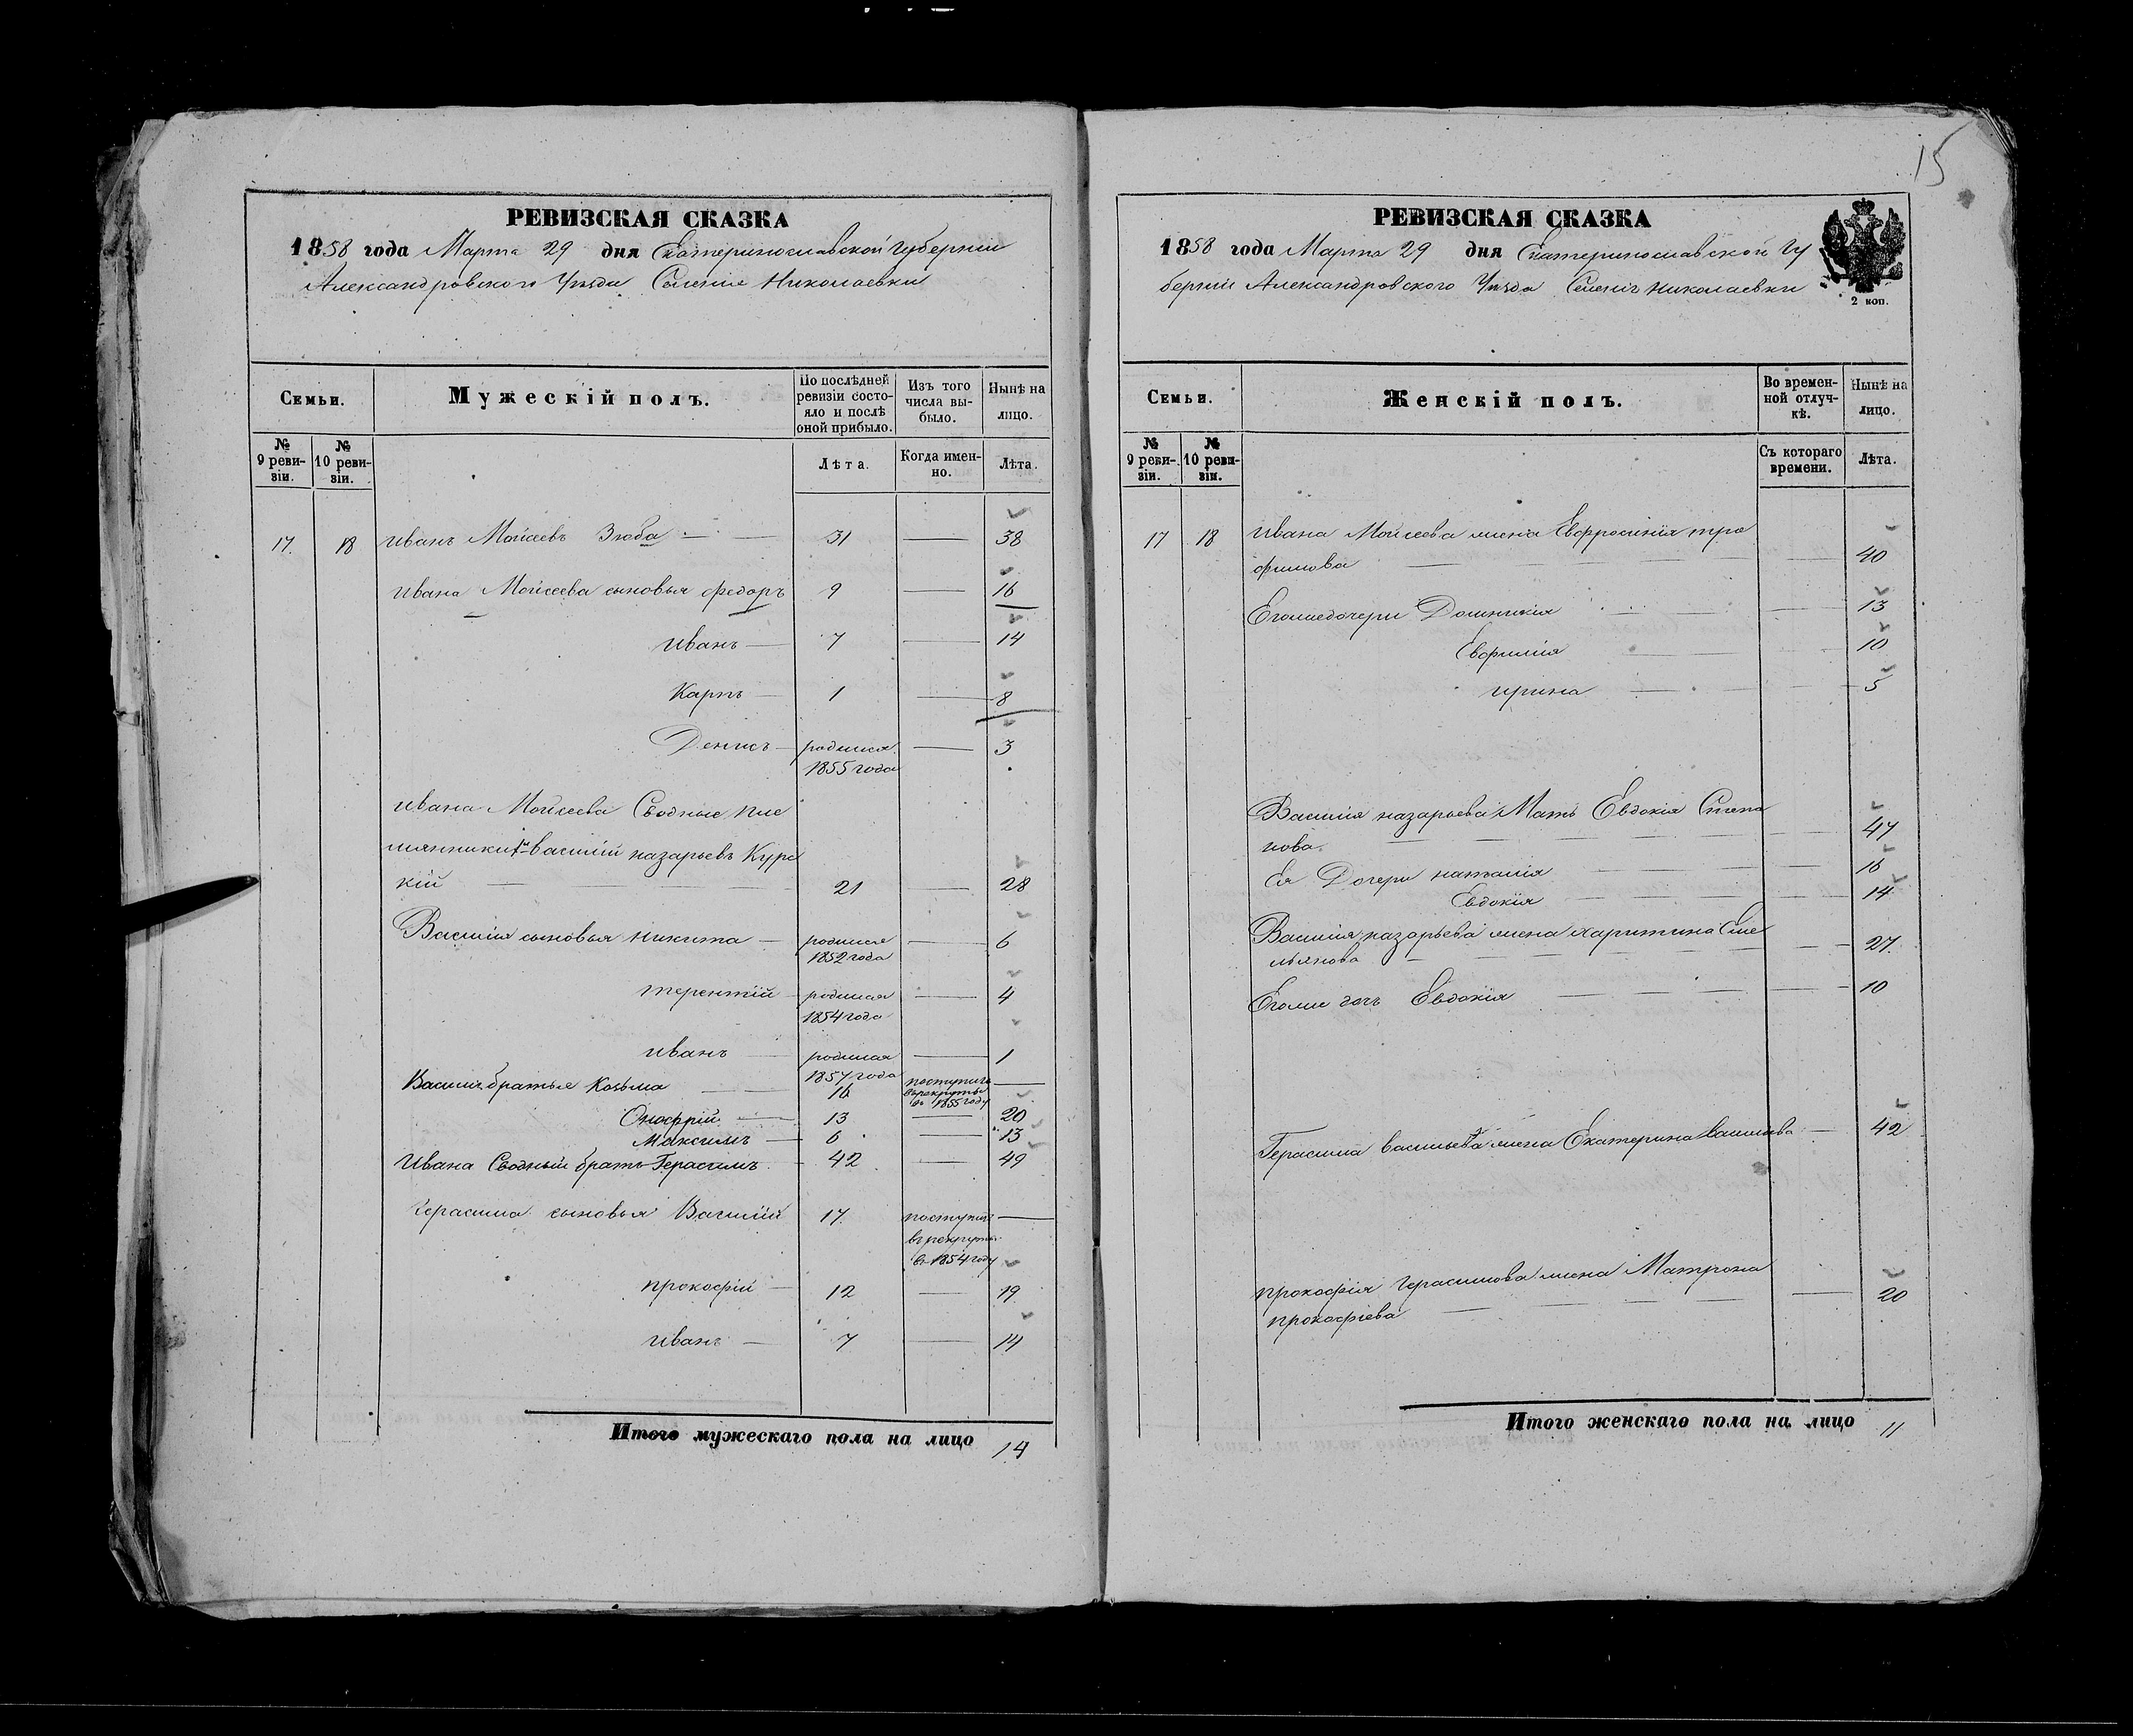 15
РЕВИЗСКАЯ СКАЗКА
1858 года Марта 29 дня Екатеринославской губерніи
Александровского Уѣзда Селенія Николаевки
Семьи.
Мужескій полъ.
По послѣдней ревизіи состояло и послѣ оной прибыло.
Изъ того числа выбыло.
Нынѣ на лицо.
№ 9 ревизіи.
№ 10 ревизіи.
Лѣта.
Когда именно.
Лѣта.
17. 18 Иванъ Моисеевъ Зюба 31 38
Ивана Моисеева сыновья Федоръ 9 16
Иванъ 7 14
Карпъ 1 8
Денисъ родился 3
1855 года
Ивана Моисеева Сводные пле
мянники 1й Василій Назарьевъ Курс
кій 21 28
Василія сыновья Никита родился 6
1852 года
Терентій родился 4
1854 года
Иванъ родился 1
1857 года
Василія братья Козьма 16 поступилъ
въ рекруты
въ 1855 году
Онофрій 13 20
Максимъ 6 13
Ивана Сводный братъ Герасимъ 42 49
Герасима сыновья Василій 17 поступилъ
въ рекруты
въ 1854 году
Прокофій 12 19
Иванъ 7 14
Итого мужескаго пола на лицо 14
РЕВИЗСКАЯ СКАЗКА
1858 года Марта 29 дня Екатеринославской Гу
берніи Александровского Уѣзда Селенія Николаевки
2 коп.
Семьи.
Женскій полъ.
Во временной отлучкѣ.
Нынѣ на лицо.
№ 9 ревизіи.
№ 10 ревизіи.
Съ котораго времени.
Лѣта.
17 18 Ивана Моисеева жена Евфросинія Тро
фимова 40
Егоже дочери Домникія 13
Евфимія 10
Ирина 5
Василія Назарьева Мать Евдокія Степа
нова 47
Ея Дочери Наталія 16
Евдокія 14
Василія Назарьева жена Харитина Еме
льянова 27
Егоже дочь Евдокія 10
Герасима Васильева жена Екатерина Васильева 42
Прокофія Герасимова жена Матрона
Прокофіева 20
Итого женскаго пола на лицо 11